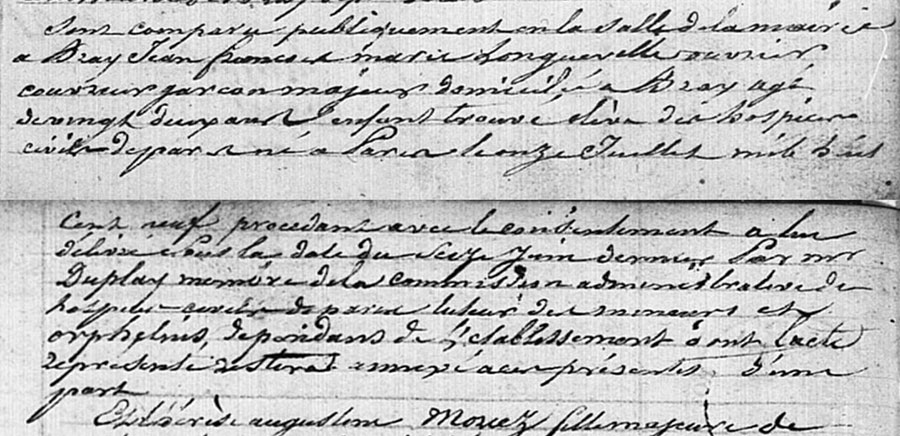 Sont comparu publiquement en la salle de la mairie
a Bray Jean francois marie Longueville ouvrier
couvreur garcon majeur domicilié a Bray agé
de vingt deux ans enfant trouvé élève des hospices
civils de paris né a Paris le onze Juillet mil huit
Cent neuf procedant avec le consentement a lui
délivré sous la date du Seize Juin dernier Par mr
Duplay membre de la commission administrative des
hospices civils de paris tuteur des mineurs et
orphelins, dependans de l'etablissement dont l'acte
représenté restera annexé aces présentes d'une
part
Et thérèse augustine Mouez fille majeure de